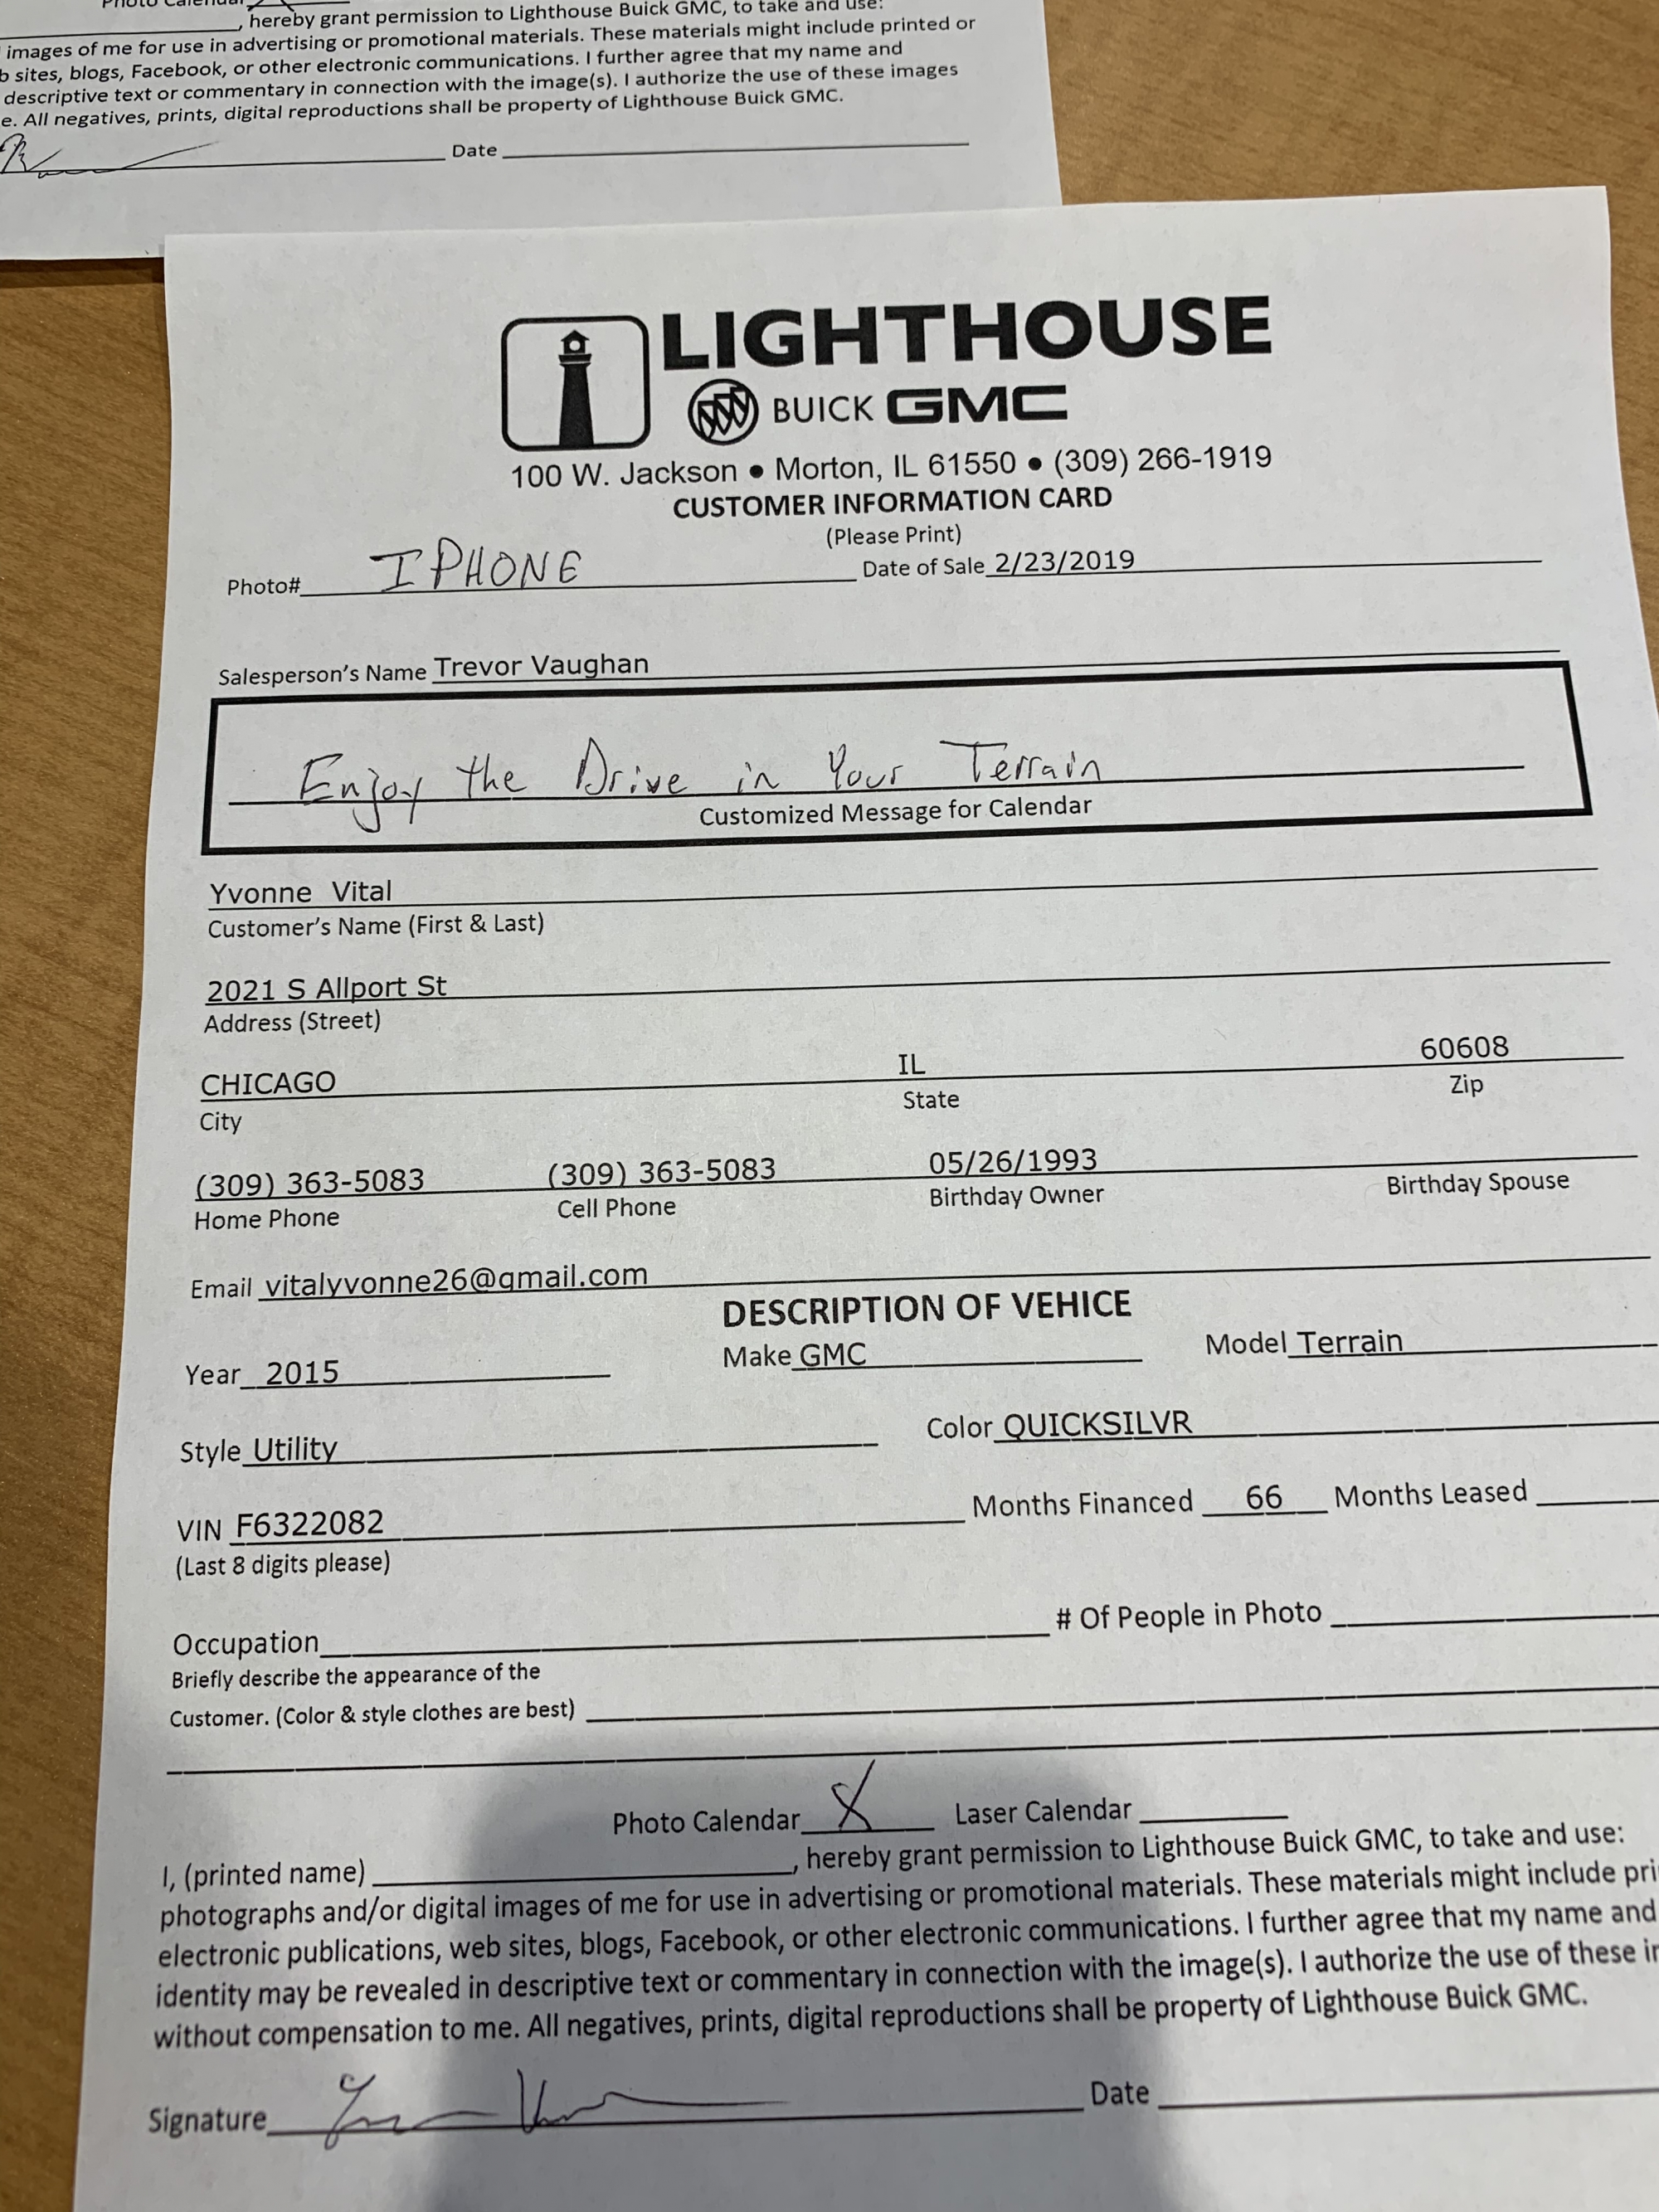 Photo Calendar
, hereby grant permission to Lighthouse Buick GMC, to take and use:
images of me for use in advertising or promotional materials. These materials might include printed or
b sites, blogs, Facebook, or other electronic communications. I further agree that my name and
descriptive text or commentary in connection with the image(s). I authorize the use of these images
e. All negatives, prints, digital reproductions shall be property of Lighthouse Buick GMC.
Date
LIGHTHOUSE
BUICK GMC
100 W. Jackson • Morton, IL 61550 • (309) 266-1919
CUSTOMER INFORMATION CARD
(Please Print)
Photo# IPHONE Date of Sale 2/23/2019
Salesperson's Name Trevor Vaughan
Enjoy the Drive in Your Terrain
Customized Message for Calendar
Yvonne Vital
Customer's Name (First & Last)
2021 S Allport St
Address (Street)
CHICAGO IL 60608
City State Zip
(309) 363-5083 (309) 363-5083 05/26/1993
Home Phone Cell Phone Birthday Owner Birthday Spouse
Email vitalyvonne26@gmail.com
DESCRIPTION OF VEHICE
Year 2015 Make GMC Model Terrain
Style Utility Color QUICKSILVR
VIN F6322082 Months Financed 66 Months Leased
(Last 8 digits please)
Occupation # Of People in Photo
Briefly describe the appearance of the
Customer. (Color & style clothes are best)
Photo Calendar X Laser Calendar
I, (printed name) , hereby grant permission to Lighthouse Buick GMC, to take and use:
photographs and/or digital images of me for use in advertising or promotional materials. These materials might include pri
electronic publications, web sites, blogs, Facebook, or other electronic communications. I further agree that my name and
identity may be revealed in descriptive text or commentary in connection with the image(s). I authorize the use of these i
without compensation to me. All negatives, prints, digital reproductions shall be property of Lighthouse Buick GMC.
Signature Date